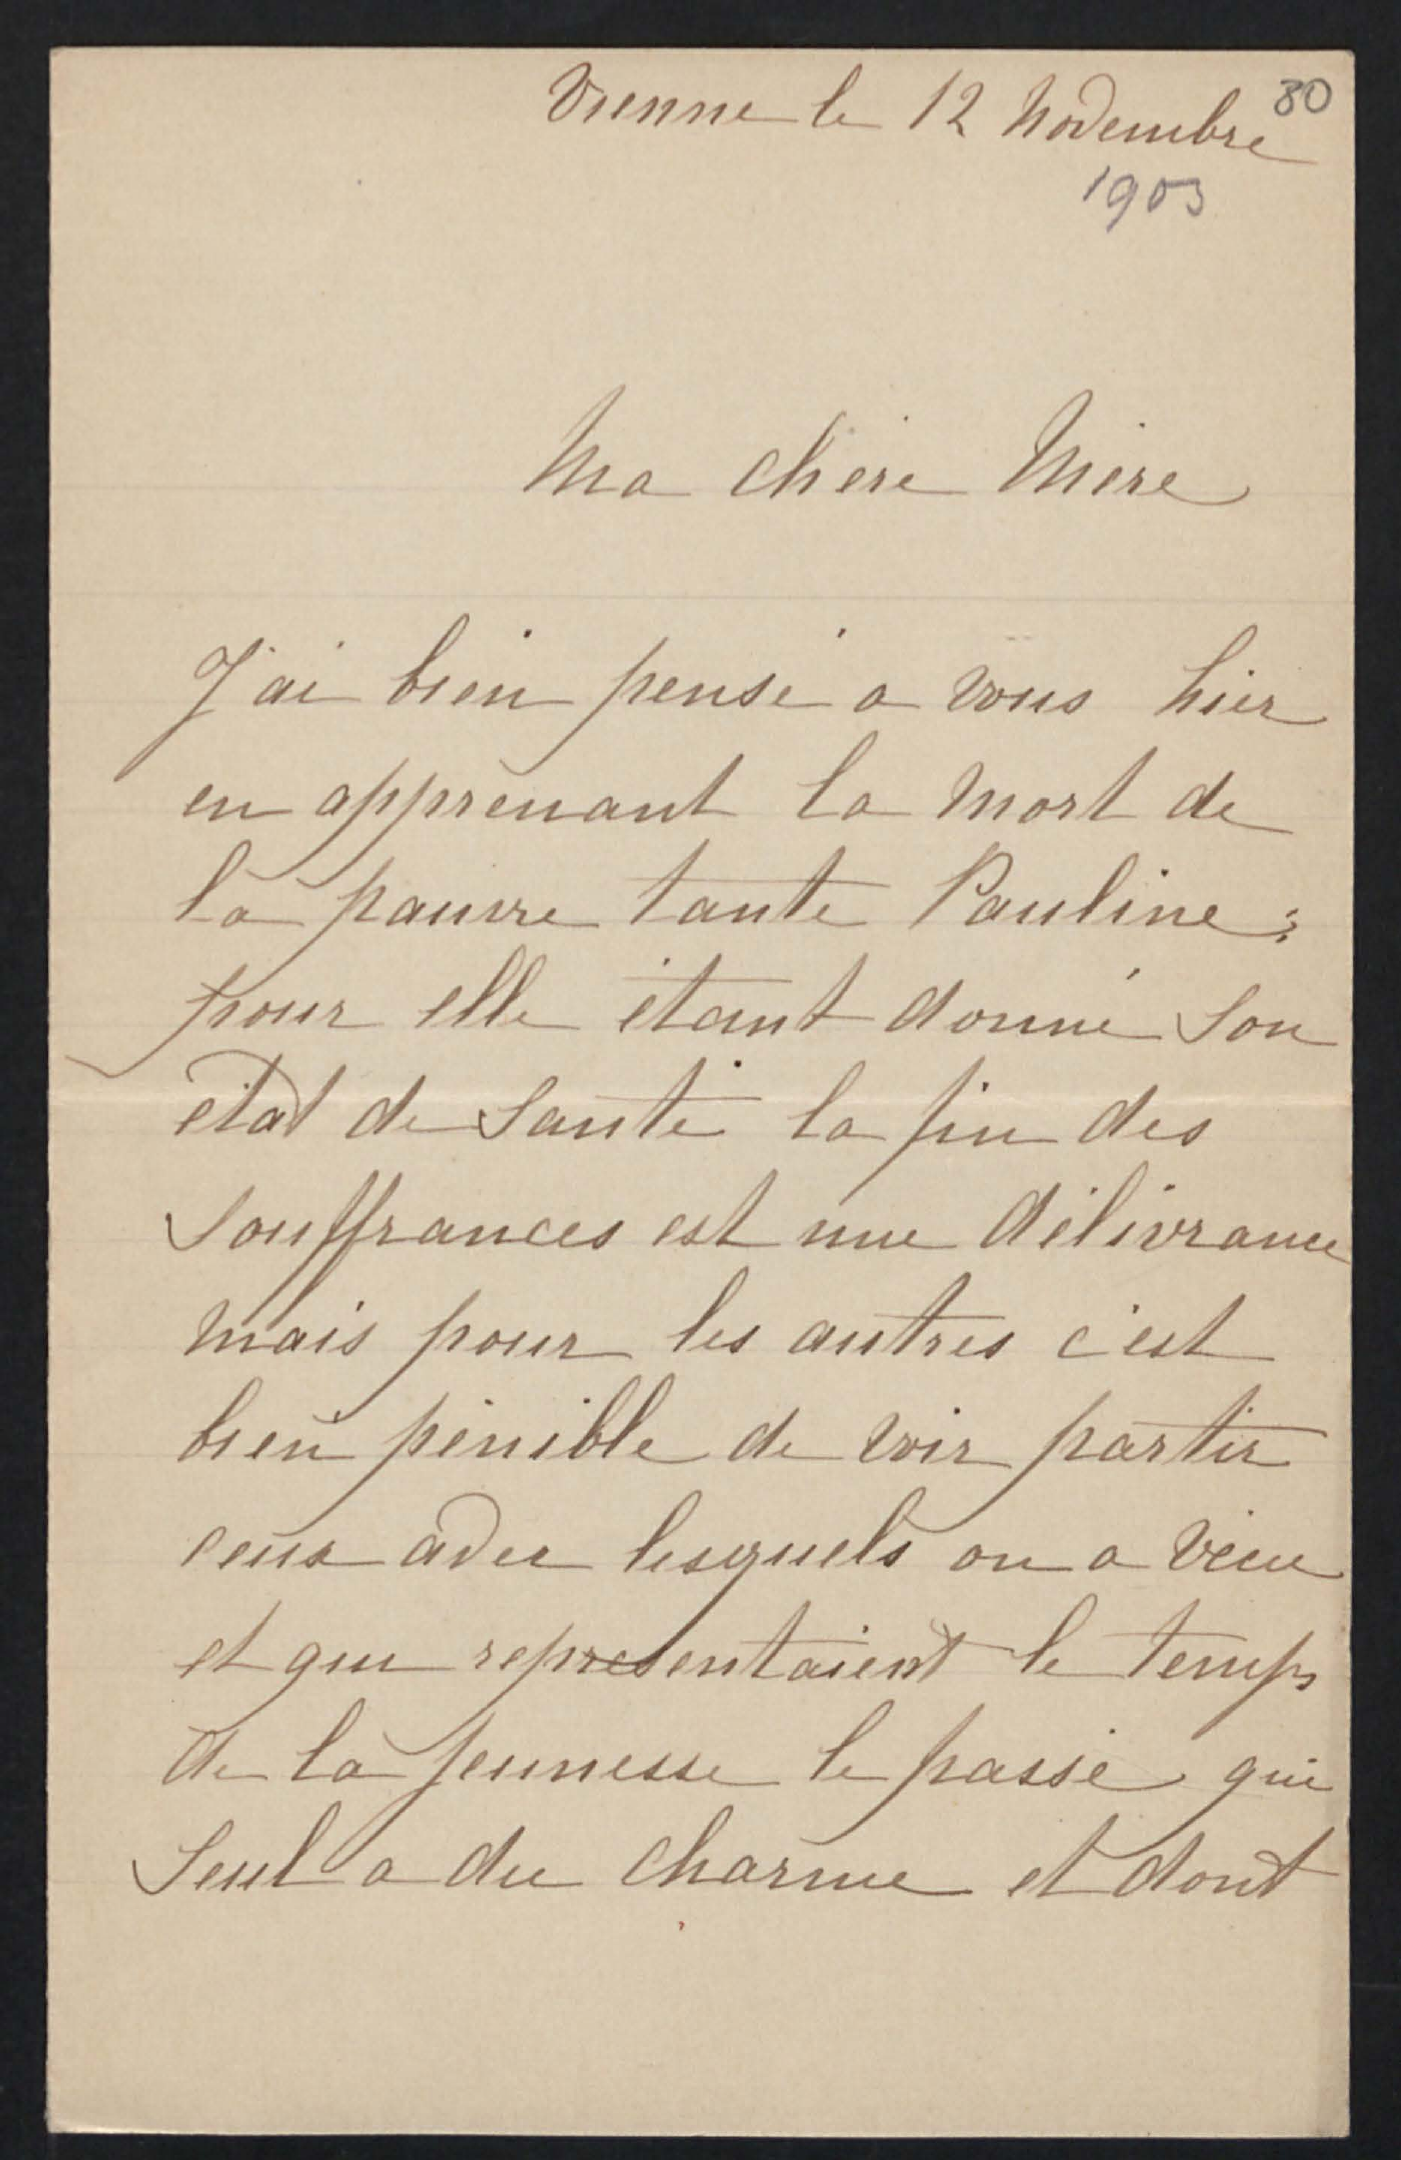 80
Vienne le 12 Novembre
1903
Ma chère Mère
J'ai bien pensé a vous hier
en apprenant la mort de
la pauvre tante Pauline;
pour elle étant donné son
état de santé la fin des
souffrances est une délivrance
mais pour les autres c'est
bien pénible de voir partir
ceux avec lesquels on a vécu
et qui representaient le temps
de la jeunesse le passé qui
seul a du charme et dont